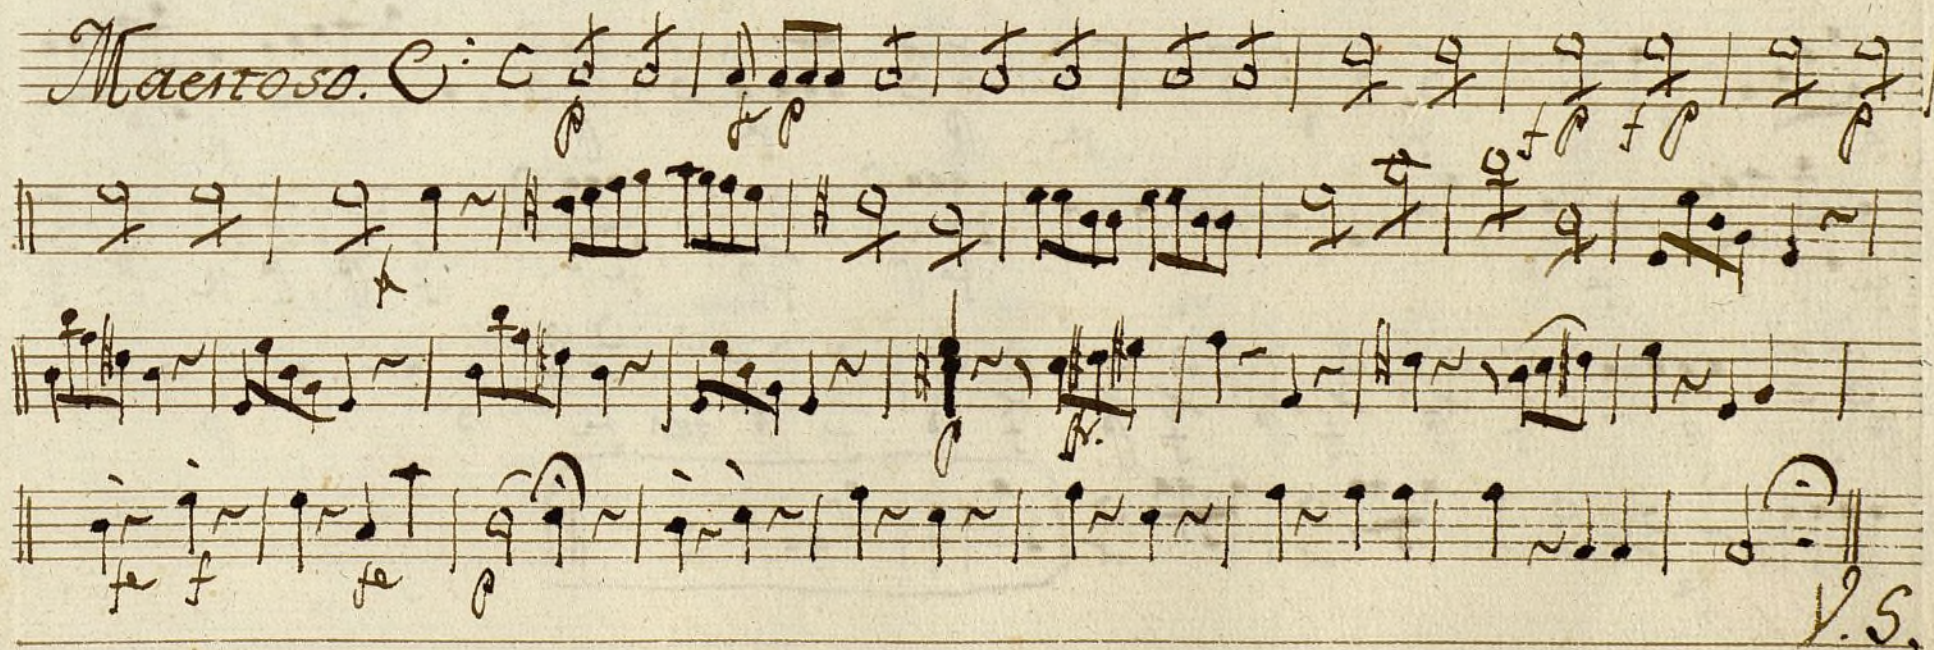 Maestoso. C
p fe p f p f p p
f
p fe.
fe f fe p
V. S.